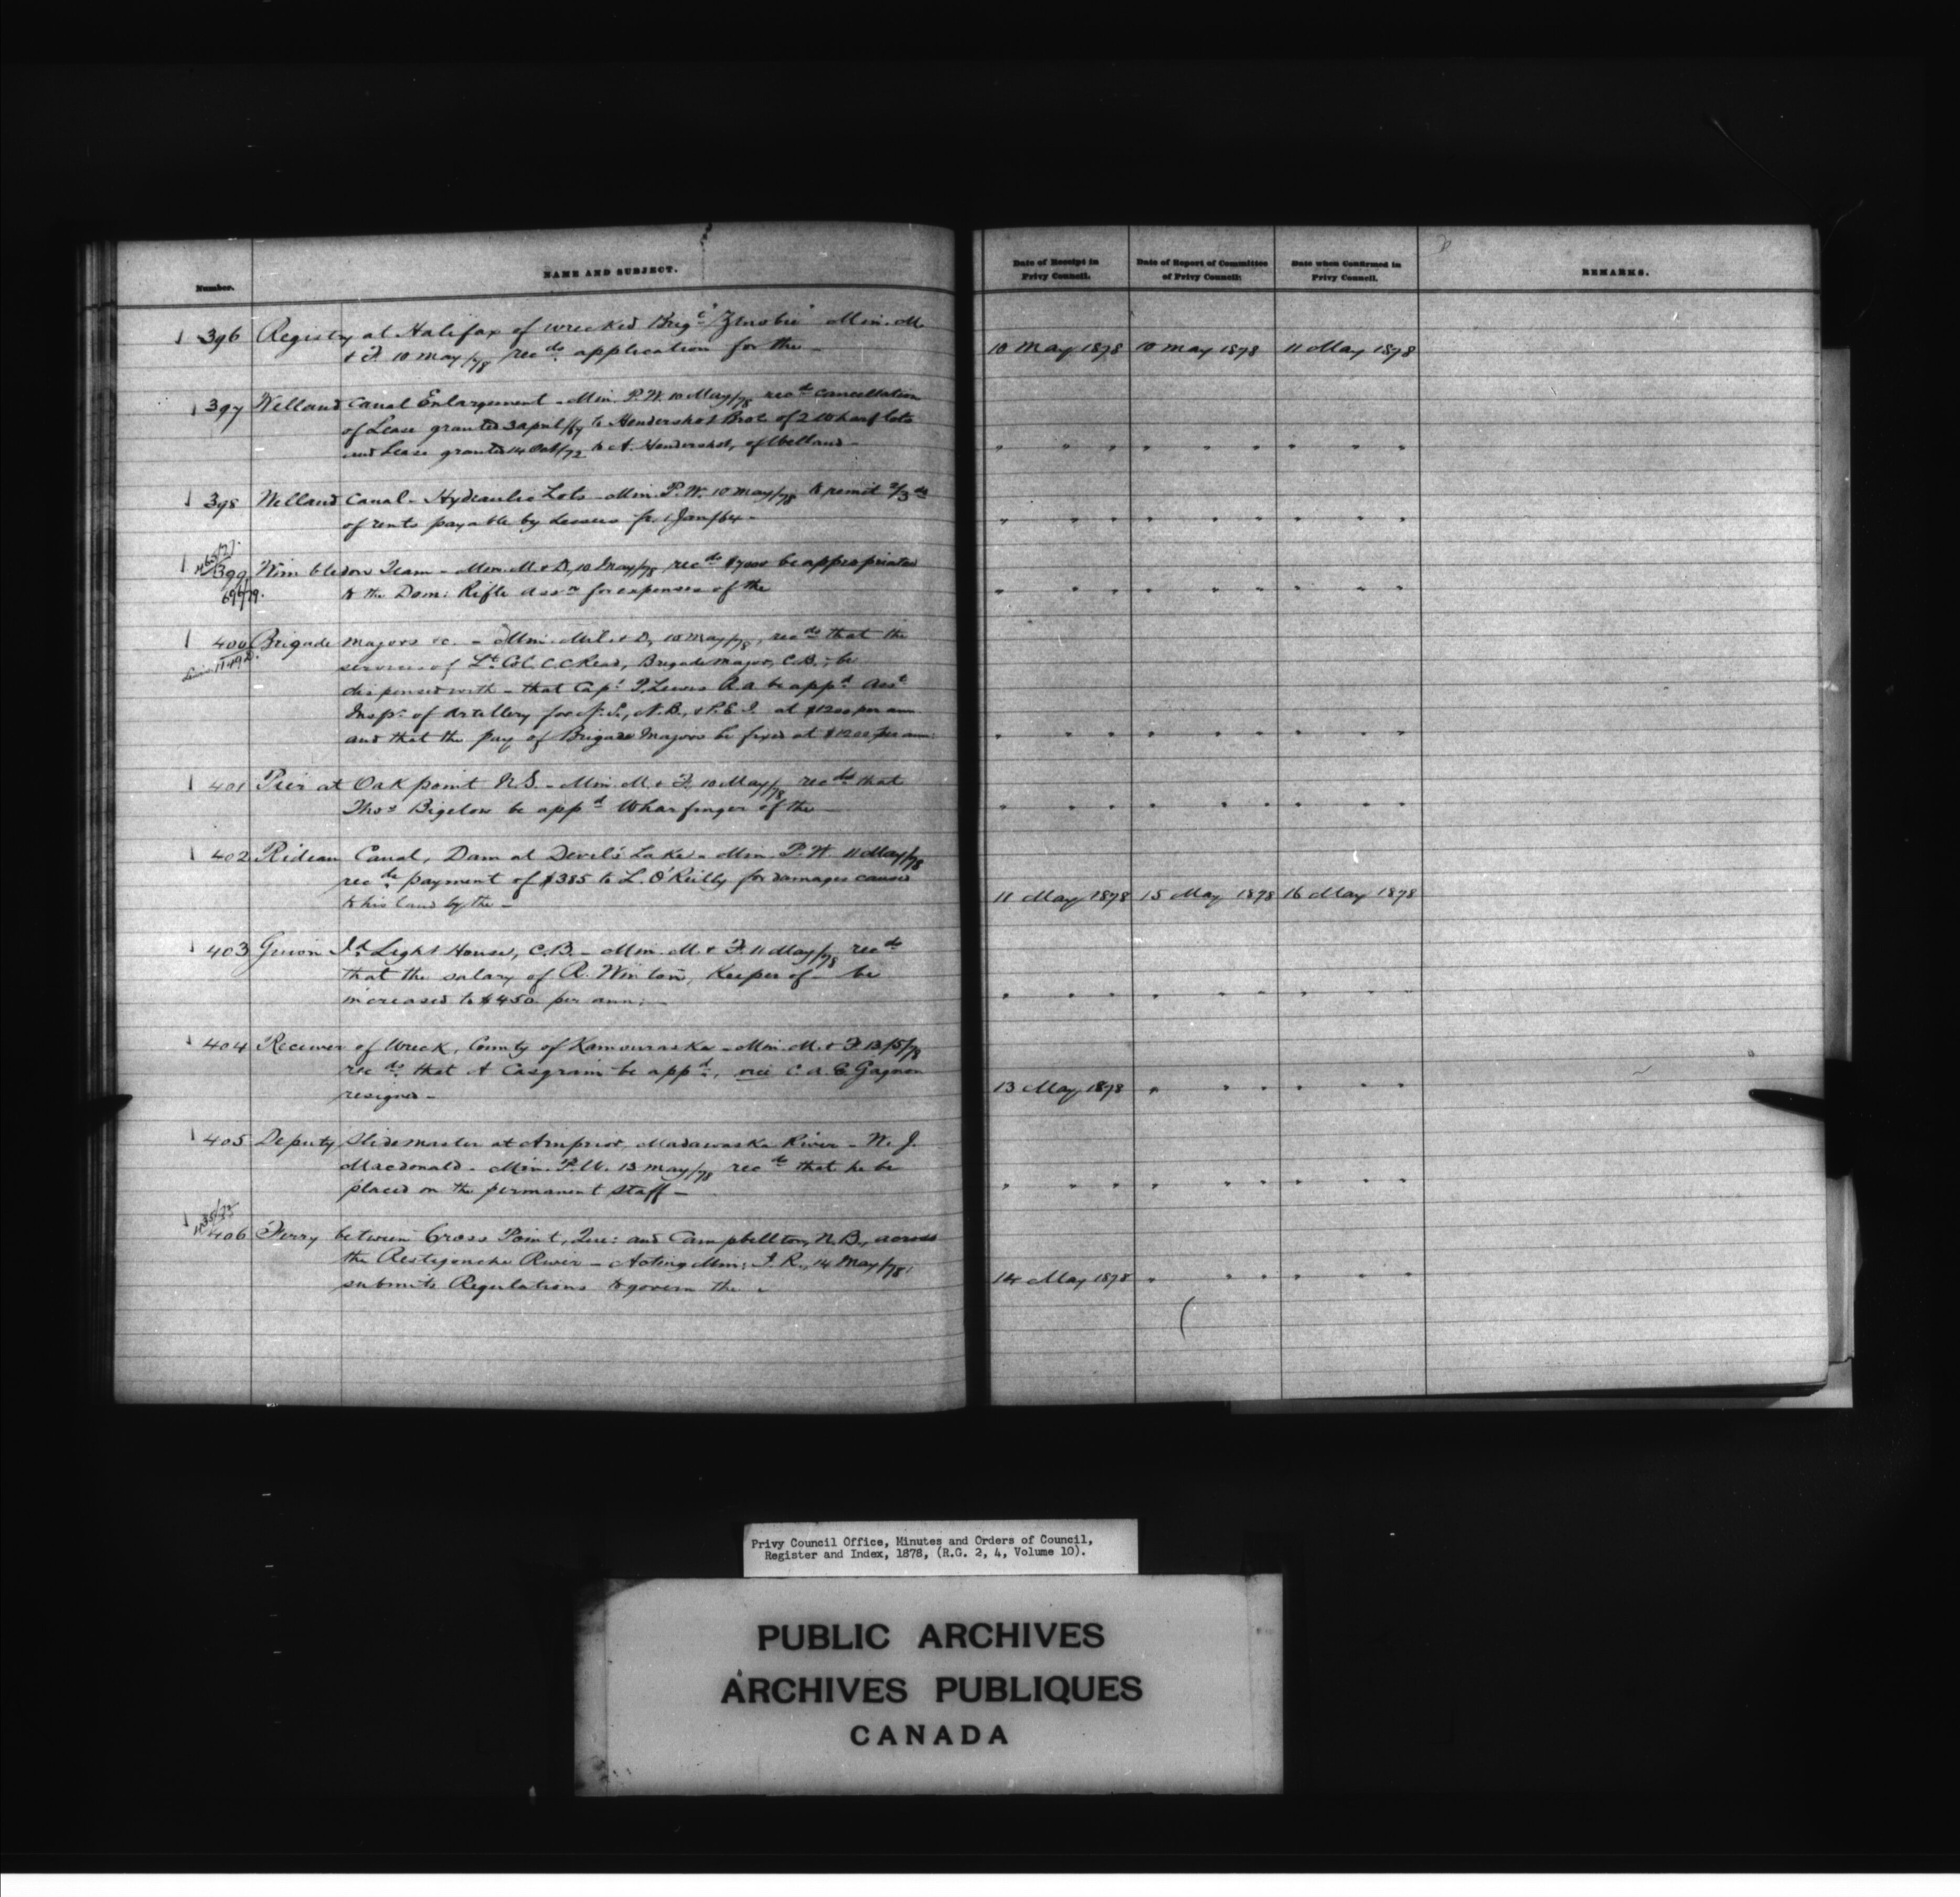 Number.
NAME AND SUBJECT.
Date of Receipt in Privy Council.
Date of Report of Committee of Privy Council.
Date when Confirmed in Privy Council.
REMARKS.
396 Registry at Halifax of wrecked Brigᵗ Min. M.
& F. 10 May/78 recᵈˢ application for the —
10 May 1878 10 May 1878 11 May 1878
397 Welland Canal Enlargement - Min. P.W. 10 May/78 recᵈˢ cancellation
of Lease granted 3 April/67 to Hendershot Bros of 2 Wharf lots
and Lease granted 14 Oct/72 to A. Hendershot, of Welland -
" " " " " " " " "
398 Welland Canal - Hydraulic Lots - Min. P.W. 10 May/78 to remit 2/3ᵈˢ
of rents payable by Lessees fr. 1 Jan/64 -
" " " " " " " " "
399 Wimbledon Team - Min. M. & D, 10 May/78 recᵈˢ $7000 be appropriated
696/79.
to the Dom: Rifle Assⁿ for expenses of the
" " " " " " " " "
400 Brigade Majors &c. - Min. Mil. & D, 10 May/78, recᵈˢ that the
services of Lᵗ Col. C.C. Read, Brigade Major, C.B., be
dispensed with - that Capᵗ P. Lewis R.A. be appᵈ Assᵗ
Inspʳ of Artillery for N.S., N.B., & P.E.I. at $1200 per ann
and that the pay of Brigade Majors be fixed at $1200 per ann:
" " " " " " " " "
401 Pier at Oak point N.S. - Min. M. & F. 10 May/78 recᵈˢ that
Thoˢ Bigelow be appᵈ Wharfinger of the —
" " " " " " " " "
402 Rideau Canal, Dam at Devil's Lake - Min P.W. 11 May/78
recᵈˢ payment of $385 to L. O'Reilly for damages caused
to his land by the -
11 May 1878 15 May 1878 16 May 1878
403 Guion Iᵈ Light House, C.B. - Min. M. & F. 11 May/78 recᵈˢ
that the salary of R. Winton, Keeper of - be
increased to $450 per ann: -
" " " " " " " " "
404 Receiver of Wreck, County of Kamouraska - Min. M. & F 13/5/78
recᵈˢ that A Casgrain be appᵈ, vice C. A. E Gagnon
resigned -
13 May 1878 " " " " " "
405 Deputy Slidemaster at Arnprior, Madawaska River - N. J.
Macdonald - Min. P.W. 13 May/78 recᵈˢ that he be
placed on the permanent staff -
" " " " " " " " "
406 Ferry between Cross Point, Que: and Campbellton, N.B., across
the Restigouche River - Acting Min: I.R., 14 May/78,
submits Regulations to govern the -
14 May 1878 " " " " " "
Privy Council Office, Minutes and Orders of Council,
Register and Index, 1878, (R.G. 2, 4, Volume 10).
PUBLIC ARCHIVES
ARCHIVES PUBLIQUES
CANADA